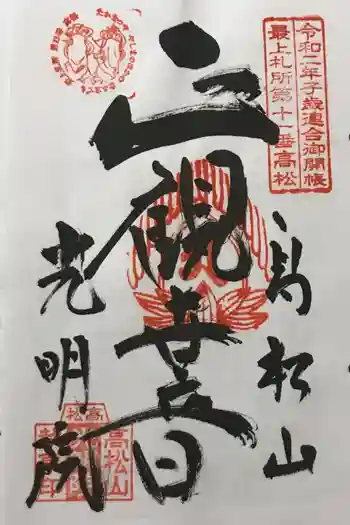 令和二年子歳連合御開帳
最上札所第十一番高松
高松山
正観世音
光明院
高松山